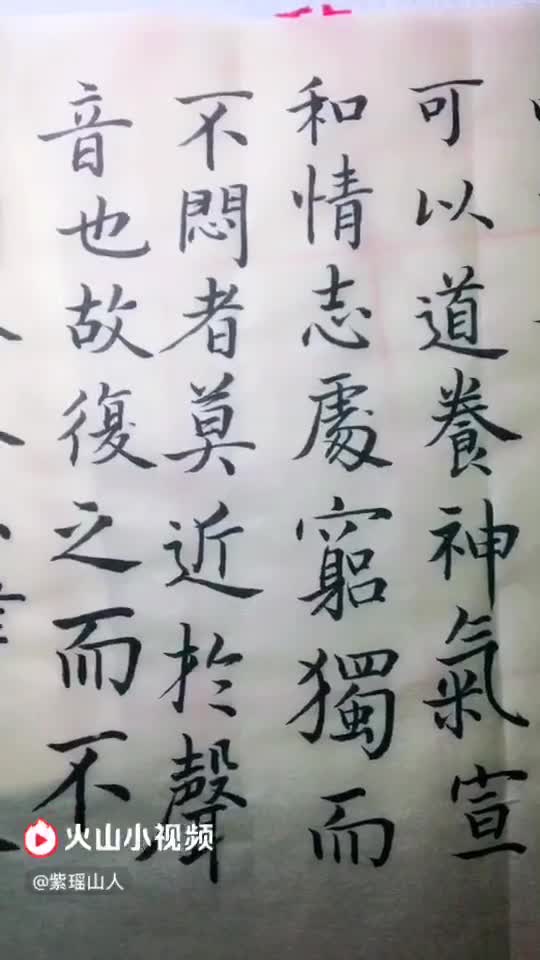 可以道養神氣宣
和情志處窮獨而
不悶者莫近於聲
音也故復之而不
火山小视频
@紫瑶山人